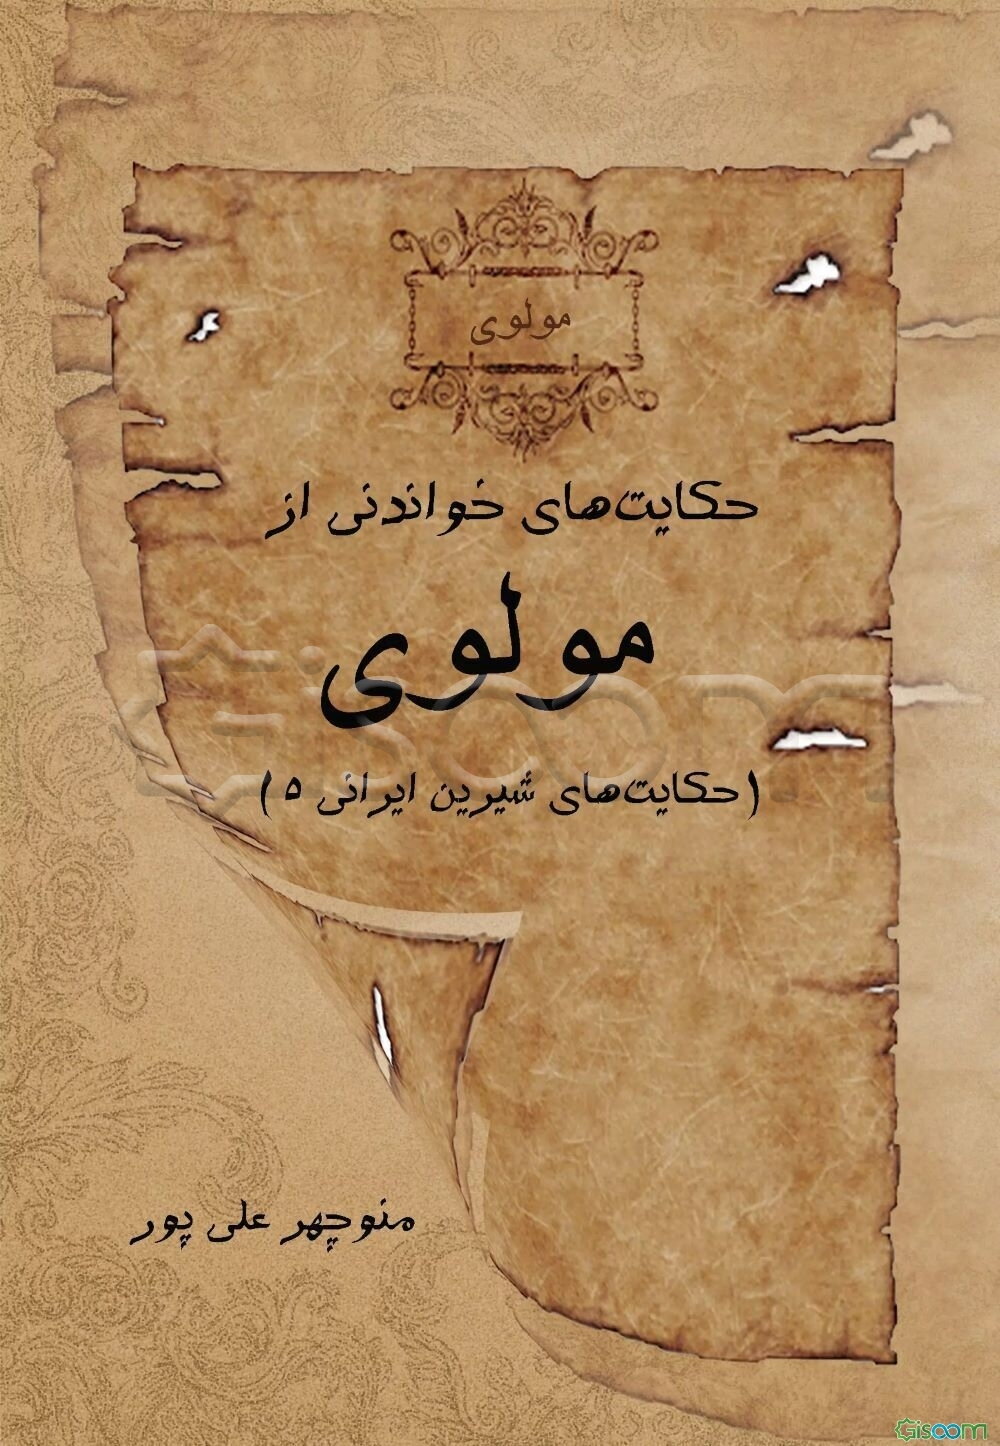 مولوی
حکایت‌های خواندنی از
مولوی
(حکایت‌های شیرین ایرانی ۵)
منوچهر علی پور
Gisoom
Gisoom